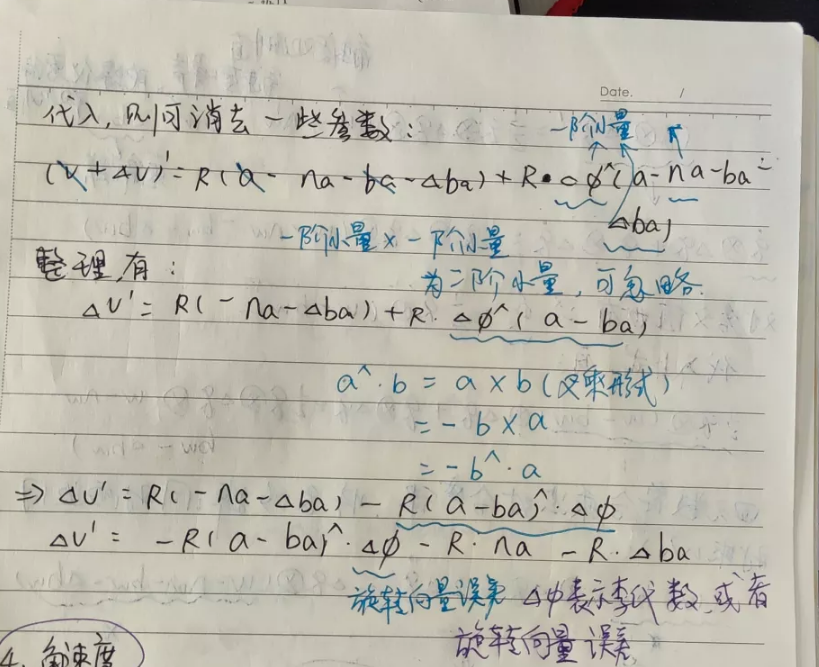 Date. /
代入,则可消去一些参数:
一阶小量
(v + Δv)' = R(a - na - ba - Δba) + R·Δφ^(a - na - ba -
Δba)
一阶小量 × 一阶小量
整理有:
为二阶小量,可忽略.
Δv' = R(-na-Δba) + R·Δφ^(a-ba)
a^·b = a×b(叉乘形式)
= -b×a
= -b^·a
⇒ Δv' = R(-na-Δba) - R(a-ba)^·Δφ
Δv' = -R(a-ba)^·Δφ - R·na - R·Δba
旋转向量误差 Δφ表示李代数,或者
旋转向量误差
4. 角速度